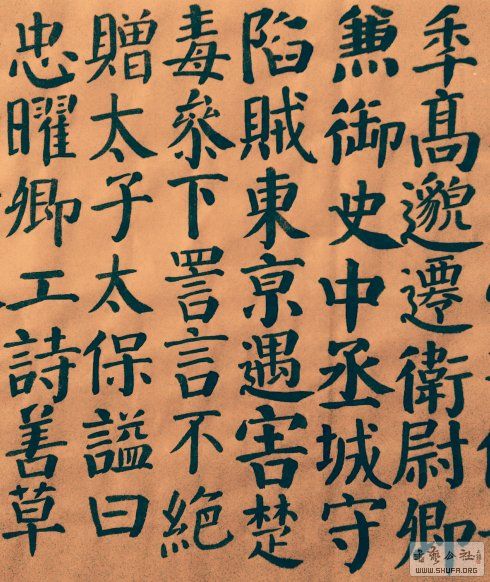 秊髙邈遷衛尉卿
兼御史中丞城守
陷賊東京遇害楚
毒叅下詈言不絕
贈太子太保謚曰
忠曜卿工詩善草
書藝公社
WWW.SHUFA.ORG